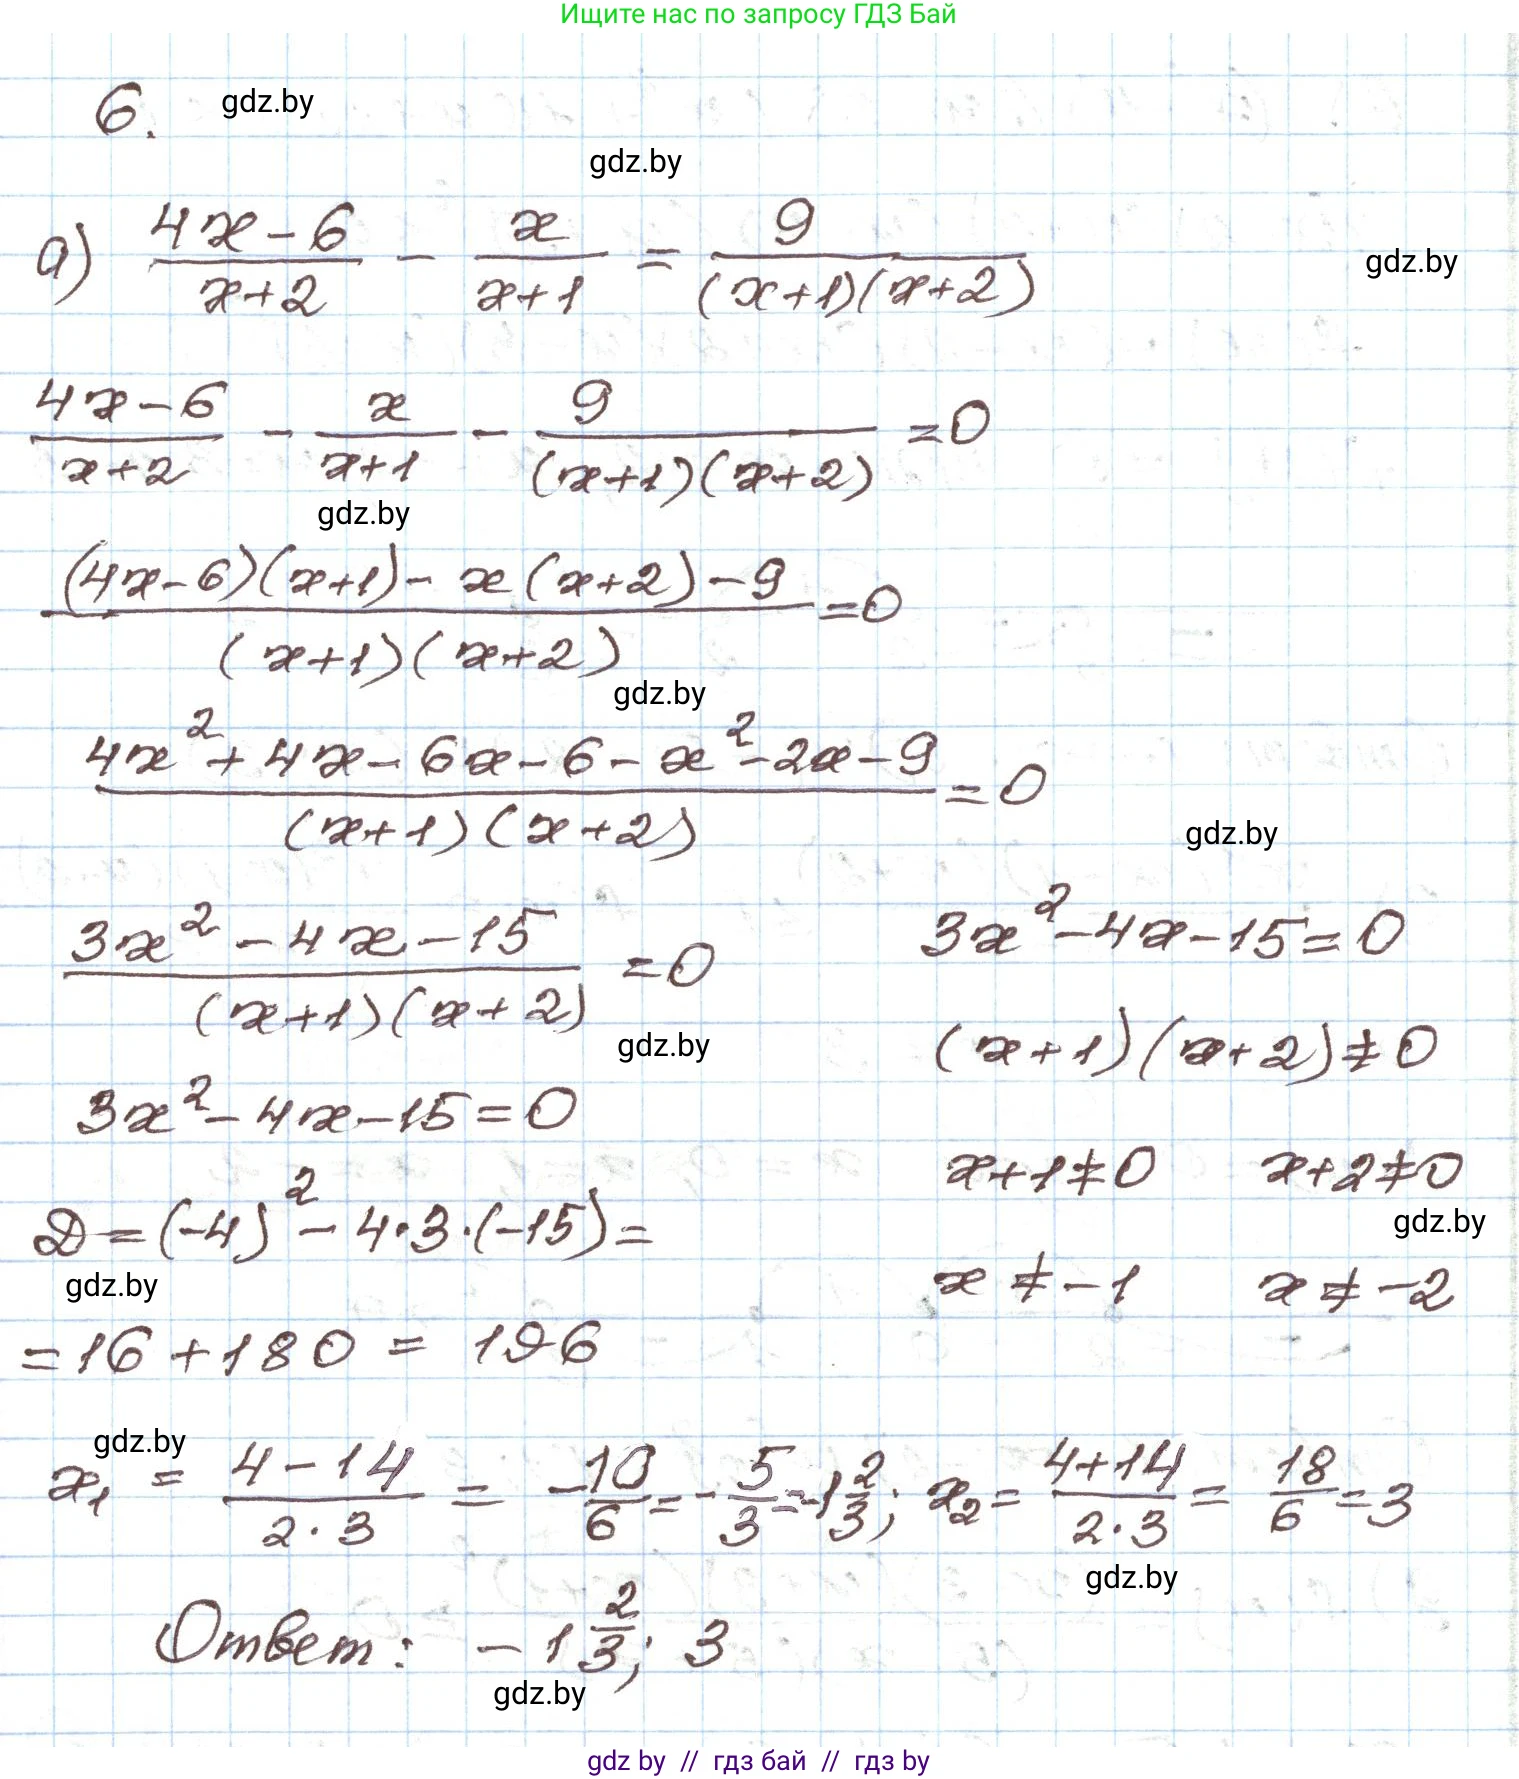 Ищите нас по запросу ГДЗ Бай
6.
gdz.by
gdz.by
а) (4x-6)/(x+2) - x/(x+1) = 9/((x+1)(x+2))
gdz.by
(4x-6)/(x+2) - x/(x+1) - 9/((x+1)(x+2)) = 0
gdz.by
((4x-6)(x+1) - x(x+2) - 9)/((x+1)(x+2)) = 0
gdz.by
(4x² + 4x - 6x - 6 - x² - 2x - 9)/((x+1)(x+2)) = 0
gdz.by
(3x² - 4x - 15)/((x+1)(x+2)) = 0
3x² - 4x - 15 = 0
gdz.by
(x+1)(x+2) ≠ 0
3x² - 4x - 15 = 0
x+1 ≠ 0 x+2 ≠ 0
gdz.by
D = (-4)² - 4·3·(-15) =
gdz.by
x ≠ -1 x ≠ -2
= 16 + 180 = 196
gdz.by
x₁ = (4-14)/(2·3) = -10/6 = -5/3 = -1 2/3; x₂ = (4+14)/(2·3) = 18/6 = 3
gdz.by
Ответ: -1 2/3; 3
gdz.by
gdz by // гдз бай // гдз by